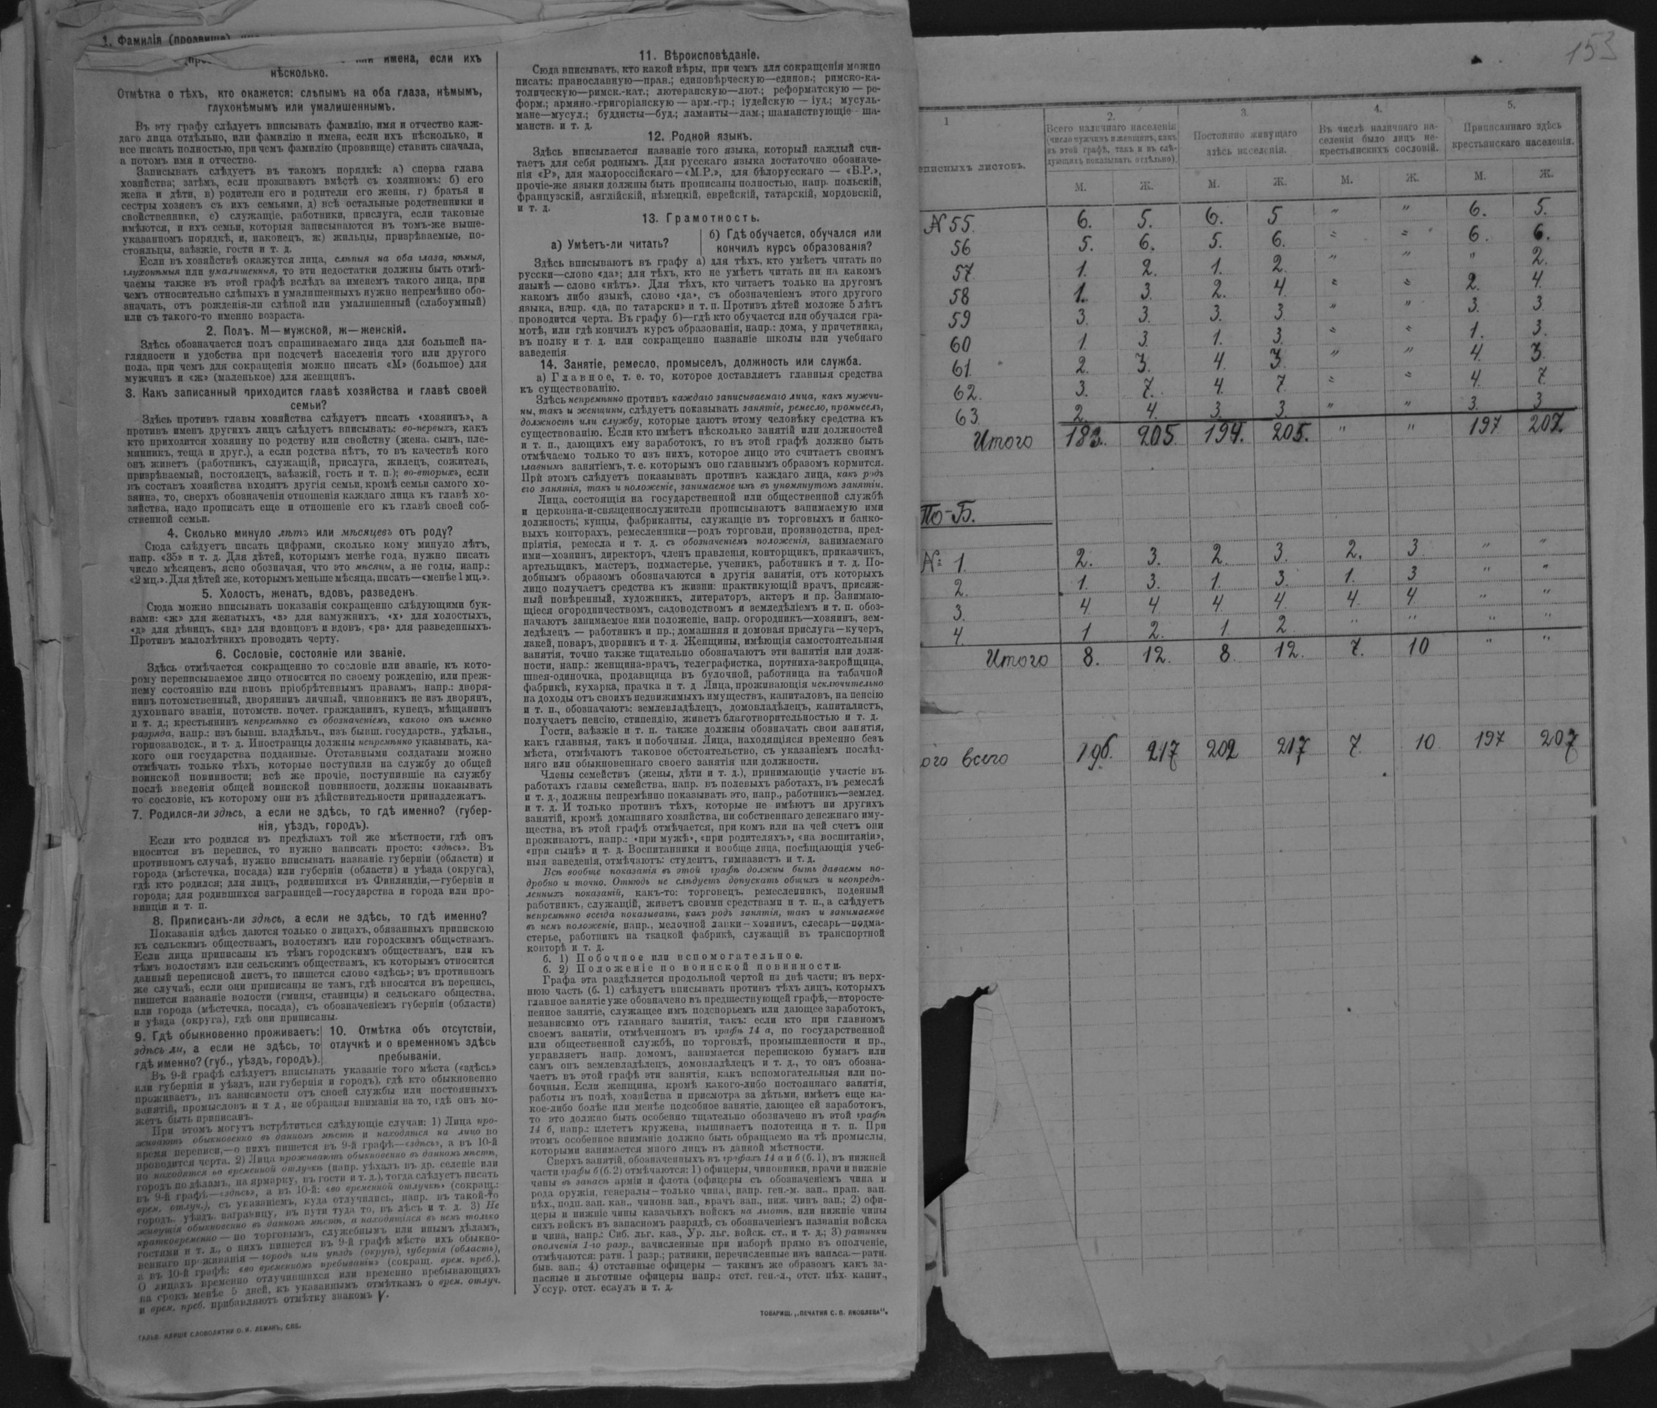 1. Фамилія (прозвище)
имена, если ихъ
нѣсколько.
Отмѣтка о тѣхъ, кто окажется: слѣпымъ на оба глаза, нѣмымъ,
глухонѣмымъ или умалишеннымъ.
Въ эту графу слѣдуетъ вписывать фамилію, имя и отчество каж-
даго лица отдѣльно, или фамилію и имена, если ихъ нѣсколько, и
все писать полностью, при чемъ фамилію (прозвище) ставить сначала,
а потомъ имя и отчество.
Записывать слѣдуетъ въ такомъ порядкѣ: а) сперва глава
хозяйства; затѣмъ, если проживаютъ вмѣстѣ съ хозяиномъ: б) его
жена и дѣти, в) родители его и родители его жены, г) братья и
сестры хозяевъ съ ихъ семьями, д) всѣ остальные родственники и
свойственники, е) служащіе, работники, прислуга, если таковые
имѣются, и ихъ семьи, которыя записываются въ томъ-же выше-
указанномъ порядкѣ, и, наконецъ, ж) жильцы, призрѣваемые, по-
стояльцы, заѣзжіе, гости и т. д.
Если въ хозяйствѣ окажутся лица, слѣпыя на оба глаза, нѣмыя,
глухонѣмыя или умалишенныя, то эти недостатки должны быть отмѣ-
чаемы также въ этой графѣ вслѣдъ за именемъ такого лица, при
чемъ относительно слѣпыхъ и умалишенныхъ нужно непремѣнно обо-
значать, отъ рожденія-ли слѣпой или умалишенный (слабоумный)
или съ такого-то именно возраста.
2. Полъ. М—мужской, ж—женскій.
Здѣсь обозначается полъ спрашиваемаго лица для большей на-
глядности и удобства при подсчетѣ населенія того или другого
пола, при чемъ для сокращенія можно писать «М» (большое) для
мужчинъ и «ж» (маленькое) для женщинъ.
3. Какъ записанный приходится главѣ хозяйства и главѣ своей
семьи?
Здѣсь противъ главы хозяйства слѣдуетъ писать «хозяинъ», а
противъ именъ другихъ лицъ слѣдуетъ вписывать: во-первыхъ, какъ
кто приходится хозяину по родству или свойству (жена, сынъ, пле-
мянникъ, теща и друг.), а если родства нѣтъ, то въ качествѣ кого
онъ живетъ (работникъ, служащій, прислуга, жилецъ, сожитель,
призрѣваемый, постоялецъ, заѣзжій, гость и т. п.); во-вторыхъ, если
въ составъ хозяйства входятъ другія семьи, кромѣ семьи самого хо-
зяина, то, сверхъ обозначенія отношенія каждаго лица къ главѣ хо-
зяйства, надо прописать еще и отношеніе его къ главѣ своей соб-
ственной семьи.
4. Сколько минуло лѣтъ или мѣсяцевъ отъ роду?
Сюда слѣдуетъ писать цифрами, сколько кому минуло лѣтъ,
напр. «35» и т. д. Для дѣтей, которымъ менѣе года, нужно писать
число мѣсяцевъ, ясно обозначая, что это мѣсяцы, а не годы, напр.:
«2 мц.». Для дѣтей же, которымъ меньше мѣсяца, писать—«менѣе 1 мц.».
5. Холостъ, женатъ, вдовъ, разведенъ.
Сюда можно вписывать показанія сокращенно слѣдующими бук-
вами: «ж» для женатыхъ, «з» для замужнихъ, «х» для холостыхъ,
«д» для дѣвицъ, «вд» для вдовцовъ и вдовъ, «рз» для разведенныхъ.
Противъ малолѣтнихъ проводить черту.
6. Сословіе, состояніе или званіе.
Здѣсь отмѣчается сокращенно то сословіе или званіе, къ кото-
рому переписываемое лицо относится по своему рожденію, или преж-
нему состоянію или вновь пріобрѣтеннымъ правамъ, напр.: дворя-
нинъ потомственный, дворянинъ личный, чиновникъ не изъ дворянъ,
духовнаго званія, потомств. почет. гражданинъ, купецъ, мѣщанинъ
и т. д.; крестьянинъ непремѣнно съ обозначеніемъ, какого онъ именно
разряда, напр.: изъ бывш. владѣльч., изъ бывш. государств., удѣльн.,
горнозаводск., и т. д. Иностранцы должны непремѣнно указывать, ка-
кого они государства подданные. Отставными солдатами можно
отмѣчать только тѣхъ, которые поступили на службу до общей
воинской повинности; всѣ же прочіе, поступившіе на службу
послѣ введенія общей воинской повинности, должны показывать
то сословіе, къ которому они въ дѣйствительности принадлежатъ.
7. Родился-ли здѣсь, а если не здѣсь, то гдѣ именно? (губер-
нія, уѣздъ, городъ).
Если кто родился въ предѣлахъ той же мѣстности, гдѣ онъ
вносится въ перепись, то нужно написать просто: «здѣсь». Въ
противномъ случаѣ, нужно вписывать названіе губерніи (области) и
города (мѣстечка, посада) или губерніи (области) и уѣзда (округа),
гдѣ кто родился; для лицъ, родившихся въ Финляндіи,—губерніи и
города; для родившихся заграницей—государства и города или про-
винціи и т. п.
8. Приписанъ-ли здѣсь, а если не здѣсь, то гдѣ именно?
Показанія здѣсь даются только о лицахъ, обязанныхъ припискою
къ сельскимъ обществамъ, волостямъ или городскимъ обществамъ.
Если лица приписаны къ тѣмъ городскимъ обществамъ, или къ
тѣмъ волостямъ или сельскимъ обществамъ, къ которымъ относится
данный переписной листъ, то пишется слово «здѣсь»; въ противномъ
же случаѣ, если они приписаны не тамъ, гдѣ вносятся въ перепись,
пишется названіе волости (гмины, станицы) и сельскаго общества,
или города (мѣстечка, посада), съ обозначеніемъ губерніи (области)
и уѣзда (округа), гдѣ они приписаны.
9. Гдѣ обыкновенно проживаетъ:
здѣсь ли, а если не здѣсь, то
гдѣ именно? (губ., уѣздъ, городъ).
10. Отмѣтка объ отсутствіи,
отлучкѣ и о временномъ здѣсь
пребываніи.
Въ 9-й графѣ слѣдуетъ вписывать указаніе того мѣста («здѣсь»
или губернія и уѣздъ, или губернія и городъ), гдѣ кто обыкновенно
проживаетъ, въ зависимости отъ своей службы или постоянныхъ
занятій, промысловъ и т. д., не обращая вниманія на то, гдѣ онъ мо-
жетъ быть приписанъ.
При этомъ могутъ встрѣтиться слѣдующіе случаи: 1) Лица про-
живаютъ обыкновенно въ данномъ мѣстѣ и находятся на лицо во
время переписи,—о нихъ пишется въ 9-й графѣ—«здѣсь», а въ 10-й
проводится черта. 2) Лица проживаютъ обыкновенно въ данномъ мѣстѣ,
но находятся во временной отлучкѣ (напр. уѣхалъ въ др. селеніе или
городъ по дѣламъ, на ярмарку, въ гости и т. д.), тогда слѣдуетъ писать
въ 9-й графѣ—«здѣсь», а въ 10-й: «во временной отлучкѣ» (сокращ.:
врем. отлуч.), съ указаніемъ, куда отлучились, напр. въ такой-то
городъ, уѣздъ, заграницу, въ пути туда то, въ лѣсъ и т. д. 3) Не
живущія обыкновенно въ данномъ мѣстѣ, а находятся въ немъ только
кратковременно—по торговымъ, служебнымъ или инымъ дѣламъ,
гостями и т. д., о нихъ пишется въ 9-й графѣ мѣсто ихъ обыкно-
веннаго проживанія—городъ или уѣздъ (округъ), губернія (область),
а въ 10-й графѣ: «во временномъ пребываніи» (сокращ. врем. преб.).
О лицахъ временно отлучившихся или временно пребывающихъ
на срокъ менѣе 5 дней, къ указаннымъ отмѣткамъ о врем. отлуч.
и врем. преб. прибавляютъ отмѣтку знакомъ V.
11. Вѣроисповѣданіе.
Сюда вписывать, кто какой вѣры, при чемъ для сокращенія можно
писать: православную—прав.; единовѣрческую—единов.; римско-ка-
толическую—римск.-кат.; лютеранскую—лют.; реформатскую — ре-
форм.; армяно-григоріанскую — арм.-гр.; іудейскую — іуд.; мусуль-
мане—мусул.; буддисты—буд.; ламаиты—лам.; шаманствующіе - ша-
манств. и т. д.
12. Родной языкъ.
Здѣсь вписывается названіе того языка, который каждый счи-
таетъ для себя роднымъ. Для русскаго языка достаточно обозначе-
нія «Р», для малороссійскаго—«М.Р.», для бѣлорусскаго — «Б.Р.»,
прочіе-же языки должны быть прописаны полностью, напр. польскій,
французскій, англійскій, нѣмецкій, еврейскій, татарскій, мордовскій,
и т. д.
13. Грамотность.
а) Умѣетъ-ли читать?
б) Гдѣ обучается, обучался или
кончилъ курсъ образованія?
Здѣсь вписываютъ въ графу а) для тѣхъ, кто умѣетъ читать по
русски—слово «да»; для тѣхъ, кто не умѣетъ читать ни на какомъ
языкѣ—слово «нѣтъ». Для тѣхъ, кто читаетъ только на другомъ
какомъ либо языкѣ, слово «да», съ обозначеніемъ этого другого
языка, напр. «да, по татарски» и т. п. Противъ дѣтей моложе 5 лѣтъ
проводится черта. Въ графу б)—гдѣ кто обучается или обучался гра-
мотѣ, или гдѣ кончилъ курсъ образованія, напр.: дома, у причетника,
въ полку и т. д. или сокращенно названіе школы или учебнаго
заведенія
14. Занятіе, ремесло, промыселъ, должность или служба.
а) Главное, т. е. то, которое доставляетъ главныя средства
къ существованію.
Здѣсь непремѣнно противъ каждаго записываемаго лица, какъ мужчи-
ны, такъ и женщины, слѣдуетъ показывать занятіе, ремесло, промыселъ,
должность или службу, которые даютъ этому человѣку средства къ
существованію. Если кто имѣетъ нѣсколько занятій или должностей
и т. п., дающихъ ему заработокъ, то въ этой графѣ должно быть
отмѣчаемо только то изъ нихъ, которое лицо это считаетъ своимъ
главнымъ занятіемъ, т. е. которымъ оно главнымъ образомъ кормится.
При этомъ слѣдуетъ показывать противъ каждаго лица, какъ родъ
его занятія, такъ и положеніе, занимаемое имъ въ упомянутомъ занятіи.
Лица, состоящія на государственной или общественной службѣ
и церковно-и-священнослужители прописываютъ занимаемую ими
должность; купцы, фабриканты, служащіе въ торговыхъ и банко-
выхъ конторахъ, ремесленники—родъ торговли, производства, пред-
пріятія, ремесла и т. д. съ обозначеніемъ положенія, занимаемаго
ими—хозяинъ, директоръ, членъ правленія, конторщикъ, приказчикъ,
артельщикъ, мастеръ, подмастерье, ученикъ, работникъ и т. д. По-
добнымъ образомъ обозначаются и другія занятія, отъ которыхъ
лицо получаетъ средства къ жизни: практикующій врачъ, присяж-
ный повѣренный, художникъ, литераторъ, актеръ и пр. Занимаю-
щіеся огородничествомъ, садоводствомъ и земледѣліемъ и т. п. обоз-
начаютъ занимаемое ими положеніе, напр. огородникъ—хозяинъ, зем-
ледѣлецъ — работникъ и пр.; домашняя и домовая прислуга—кучеръ,
лакей, поваръ, дворникъ и т. д. Женщины, имѣющія самостоятельныя
занятія, точно также тщательно обозначаютъ эти занятія или долж-
ности, напр.: женщина-врачъ, телеграфистка, портниха-закройщица,
швея-одиночка, продавщица въ булочной, работница на табачной
фабрикѣ, кухарка, прачка и т. д. Лица, проживающія исключительно
на доходы отъ своихъ недвижимыхъ имуществъ, капиталовъ, на пенсію
и т. п., обозначаютъ: землевладѣлецъ, домовладѣлецъ, капиталистъ,
получаетъ пенсію, стипендію, живетъ благотворительностью и т. д.
Гости, заѣзжіе и т. п. также должны обозначать свои занятія,
какъ главныя, такъ и побочныя. Лица, находящіяся временно безъ
мѣста, отмѣчаютъ таковое обстоятельство, съ указаніемъ послѣд-
няго или обыкновеннаго своего занятія или должности.
Члены семействъ (жены, дѣти и т. д.), принимающіе участіе въ
работахъ главы семейства, напр. въ полевыхъ работахъ, въ ремеслѣ
и т. д., должны непремѣнно показывать это, напр., работникъ—землед.
и т. д. И только противъ тѣхъ, которые не имѣютъ ни другихъ
занятій, кромѣ домашняго хозяйства, ни собственнаго денежнаго иму-
щества, въ этой графѣ отмѣчается, при комъ или на чей счетъ они
проживаютъ, напр.: «при мужѣ», «при родителяхъ», «на воспитаніи»,
«при сынѣ» и т. д. Воспитанники и вообще лица, посѣщающія учеб-
ныя заведенія, отмѣчаютъ: студентъ, гимназистъ и т. д.
Всѣ вообще показанія въ этой графѣ должны быть даваемы по-
дробно и точно. Отнюдь не слѣдуетъ допускать общихъ и неопредѣ-
ленныхъ показаній, какъ-то: торговецъ, ремесленникъ, поденный
работникъ, служащій, живетъ своими средствами и т. п., а слѣдуетъ
непремѣнно всегда показывать, какъ родъ занятія, такъ и занимаемое
въ немъ положеніе, напр., мелочной лавки—хозяинъ, слесарь—подма-
стерье, работникъ на ткацкой фабрикѣ, служащій въ транспортной
конторѣ и т. д.
б. 1) Побочное или вспомогательное.
б. 2) Положеніе по воинской повинности.
Графа эта раздѣляется продольной чертой на двѣ части; въ верх-
нюю часть (б. 1) слѣдуетъ вписывать противъ тѣхъ лицъ, которыхъ
главное занятіе уже обозначено въ предшествующей графѣ,—второсте-
пенное занятіе, служащее имъ подспорьемъ или дающее заработокъ,
независимо отъ главнаго занятія, такъ: если кто при главномъ
своемъ занятіи, отмѣченномъ въ графѣ 14 а, по государственной
или общественной службѣ, по торговлѣ, промышленности и пр.,
управляетъ напр. домомъ, занимается перепискою бумагъ или
самъ онъ землевладѣлецъ, домовладѣлецъ и т. д., то онъ обозна-
чаетъ въ этой графѣ эти занятія, какъ вспомогательныя или по-
бочныя. Если женщина, кромѣ какого-либо постояннаго занятія,
работы въ полѣ, хозяйства и присмотра за дѣтьми, имѣетъ еще ка-
кое-либо болѣе или менѣе подсобное занятіе, дающее ей заработокъ,
то это должно быть особенно тщательно обозначено въ этой графѣ
14 б, напр.: плететъ кружева, вышиваетъ полотенца и т. п. При
этомъ особенное вниманіе должно быть обращаемо на тѣ промыслы,
которыми занимается много лицъ въ данной мѣстности.
Сверхъ занятій, обозначенныхъ въ графахъ 14 а и б (б. 1), въ нижней
части графы б (б. 2) отмѣчаются: 1) офицеры, чиновники, врачи и нижніе
чины въ запасѣ арміи и флота (офицеры съ обозначеніемъ чина и
рода оружія, генералы—только чина), напр. ген.-м. зап., прап. зап.
пѣх., подп. зап. кав., чиновн зап., врачъ зап., ниж. чинъ зап.; 2) офи-
церы и нижніе чины казачьихъ войскъ на льготѣ, или нижніе чины
сихъ войскъ въ запасномъ разрядѣ, съ обозначеніемъ названія войска
и чина, напр.: Сиб. льг. каз., Ур. льг. войск. ст., и т. д.; 3) ратники
ополченія 1-го разр., зачисленные при наборѣ прямо въ ополченіе,
отмѣчаются: ратн. 1 разр.; ратники, перечисленные изъ запаса.—ратн.
быв. зап.; 4) отставные офицеры — такимъ же образомъ какъ за-
пасные и льготные офицеры напр.: отст. ген.-л., отст. пѣх. капит.,
Уссур. отст. есаулъ и т. д.
ТОВАРИЩ. „ПЕЧАТНЯ С. П. ЯКОВЛЕВА“.
153
1 2. 3. 4. 5.
Всего наличнаго населенія
(число мужчинъ и женщинъ, какъ
въ этой графѣ, такъ и въ слѣ-
дующихъ показывать отдѣльно).
Постоянно живущаго
здѣсь населенія.
Въ числѣ наличнаго на-
селенія было лицъ не-
крестьянскихъ сословій.
Приписаннаго здѣсь
крестьянскаго населенія.
еписныхъ листовъ.
М. Ж. М. Ж. М. Ж. М. Ж.
№ 55. 6. 5. 6. 5 " " 6. 5.
56 5. 6. 5. 6. " " 6. 6.
57 1. 2. 1. 2. " 2.
58 1. 3. 2. 4. " " 2. 4.
59 3. 3. 3. 3 " " 3. 3.
60 1. 3. 1. 3. " " 1. 3.
61 2. 3. 4. 3. " " 4. 3.
62. 3. 7. 4. 7. " " 4. 7.
63 2. 4. 3. 3. " " 3. 3
Итого 188. 205. 194. 205. " " 197 207.
По-Б.
№ 1. 2. 3. 2. 3. 2. 3 " "
2. 1. 3. 1. 3. 1. 3 " "
3. 4 4 4. 4. 4. 4. " "
4. 1 2. 1. 2 " " " "
Итого 8. 12. 8. 12. 7. 10 " "
ого всего 196. 217 202 217 7 10 197 207